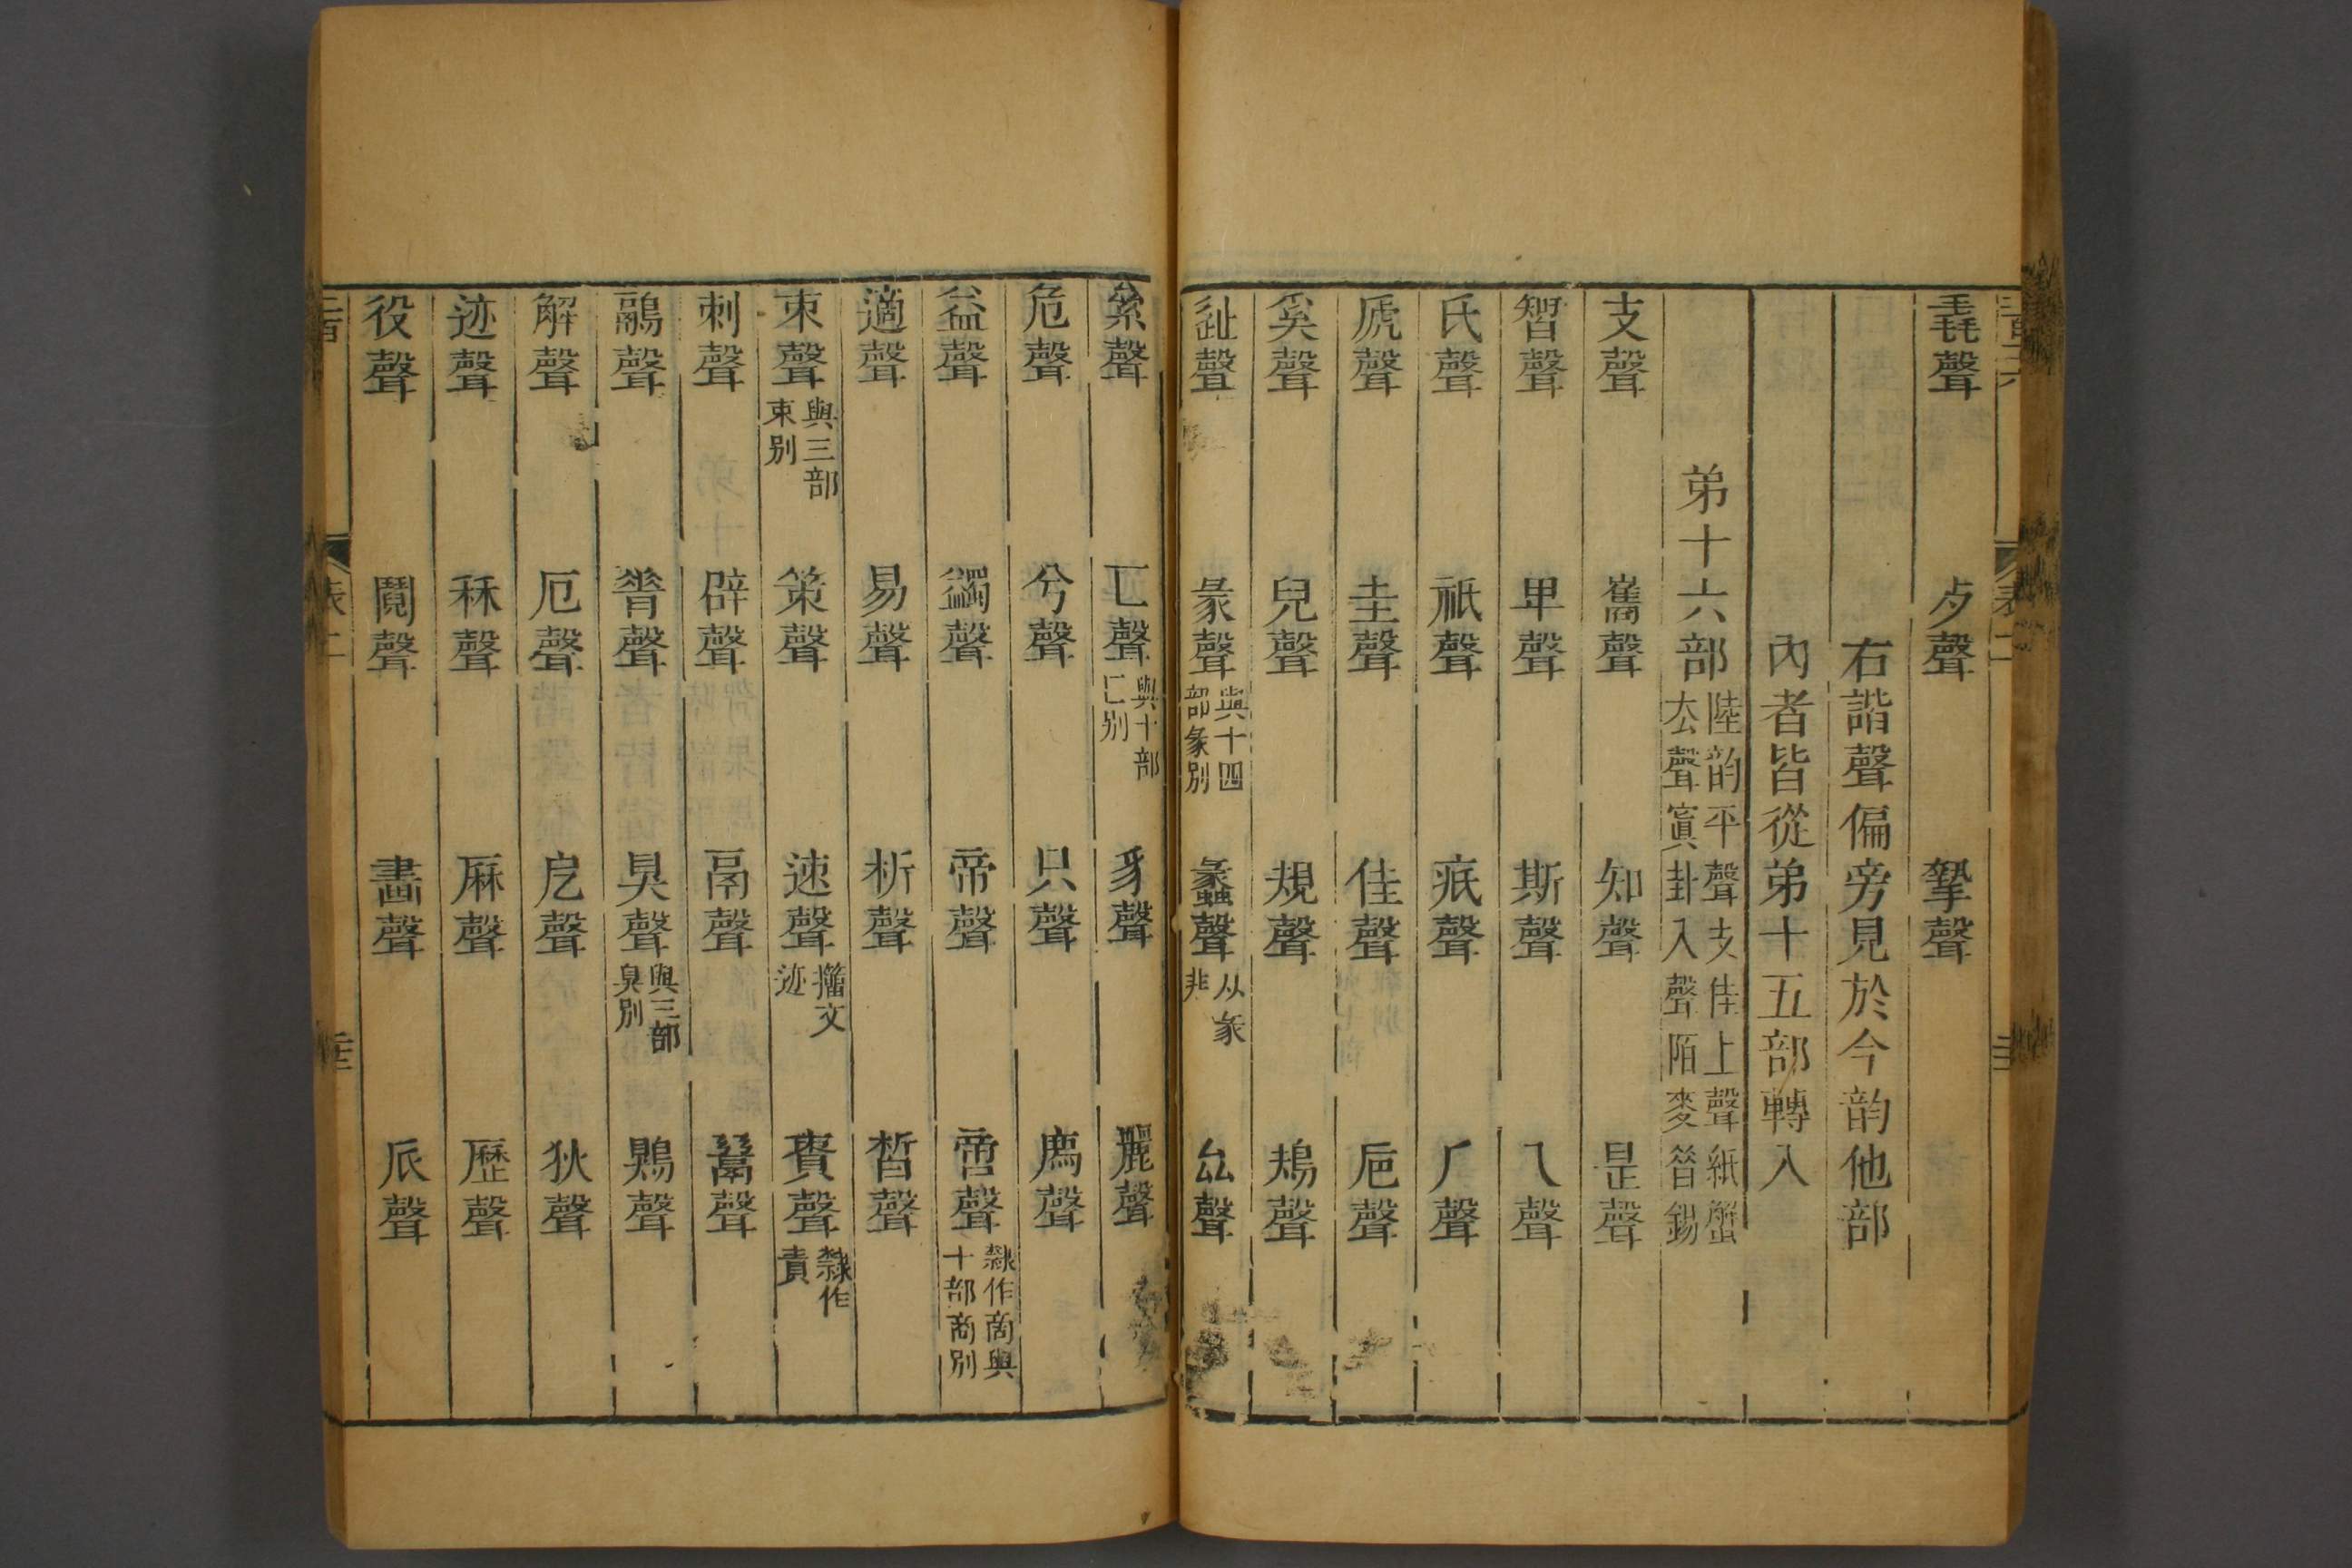 毳聲 歺聲 㨖聲
右諧聲偏旁見於今韵他部
內者皆從弟十五部轉入
弟十六部 陸韵平聲支佳上聲紙蟹
去聲寘卦入聲陌麥昔錫
支聲 巂聲 知聲 是聲
智聲 卑聲 斯聲 乁聲
氏聲 祇聲 疧聲 𠂆聲
虒聲 圭聲 佳聲 卮聲
奚聲 兒聲 規聲 鳺聲
𨒪聲 彖聲 與十四
部彖別 蠡聲 从彖
非 厽聲
絫聲 匸聲 與十部
匚別 豸聲 麗聲
危聲 兮聲 只聲 廌聲
益聲 蠲聲 帝聲 啻聲 隸作啇與
十部商別
適聲 易聲 析聲 晳聲
朿聲 與三部
束別 策聲 速聲 籒文
迹 賷聲 隸作
責
刺聲 辟聲 鬲聲 䰜聲
鷊聲 脊聲 狊聲 與三部
臭別 鶪聲
解聲 厄聲 戹聲 狄聲
迹聲 秝聲 厤聲 歷聲
役聲 鬩聲 畫聲 𠂢聲